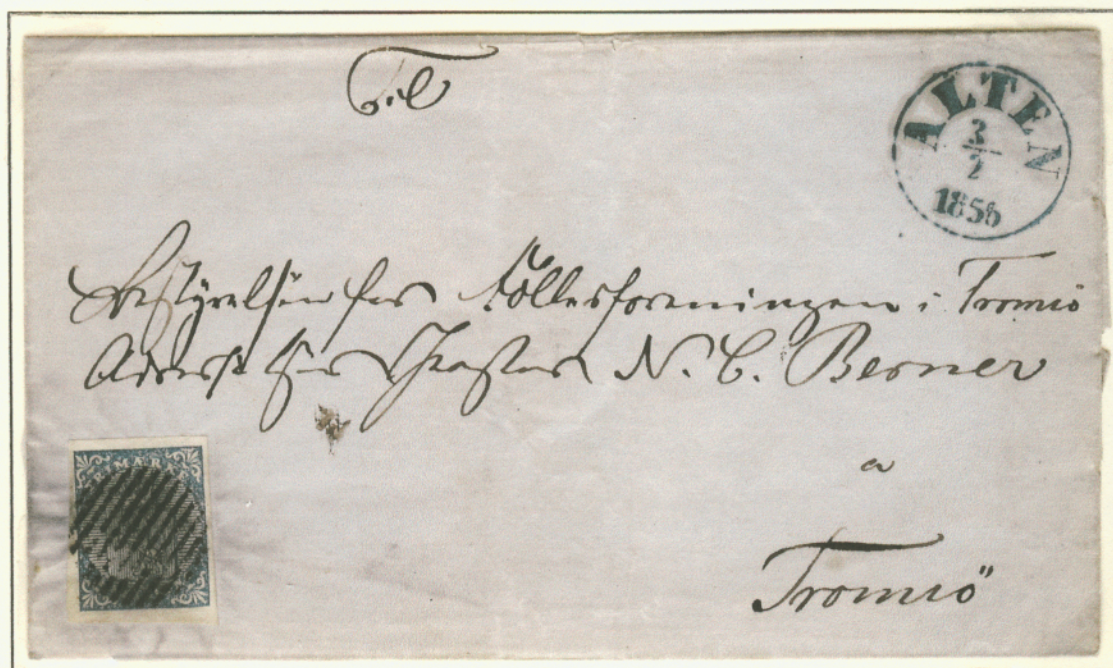 Til
ALTEN
3/2
1856
Bestyrelsen for Fællesforeningen i Tromsö
Adresse Herr N. C. Berner
a
Tromsö
FRIMÆRKE